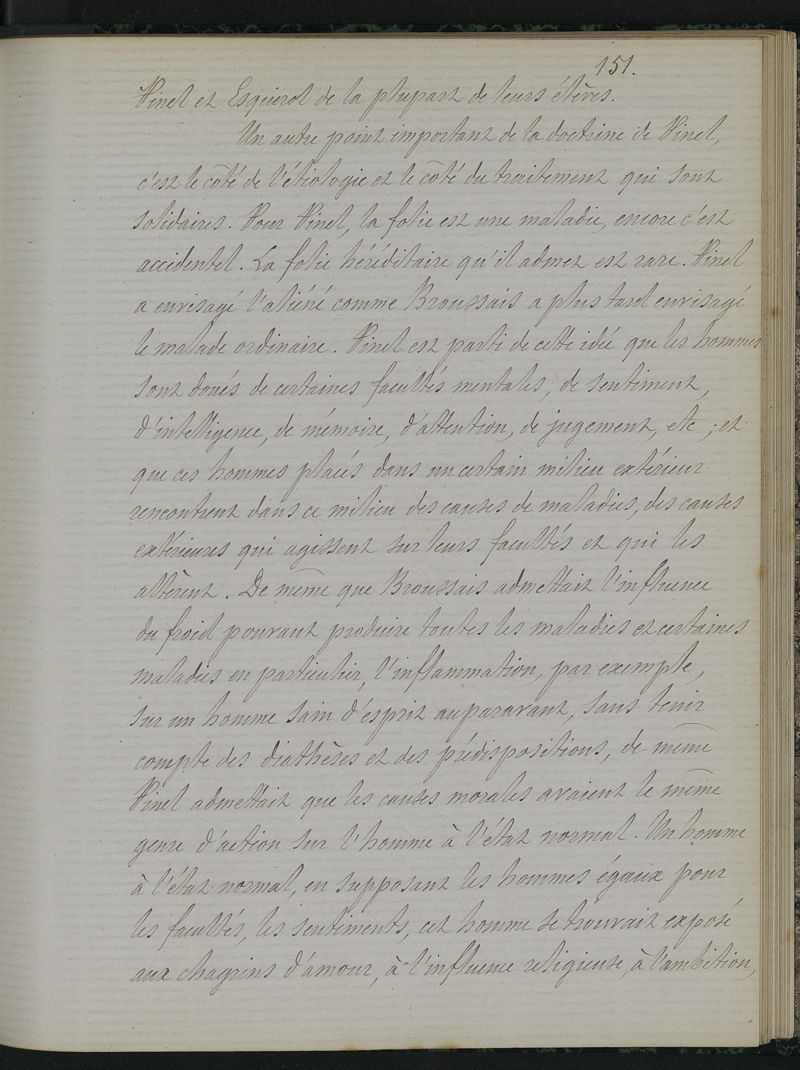 151.
Pinel et Esquirol de la plupart de leurs élèves.
Un autre point important de la doctrine de Pinel,
c'est le côté de l'étiologie et le côté du traitement qui sont
solidaires. Pour Pinel, la folie est une maladie, encore c'est
accidentel. La folie héréditaire qu'il admet est rare. Pinel
a envisagé l'aliéné comme Broussais a plus tard envisagé
le malade ordinaire. Pinel est parti de cette idée que les hommes
sont doués de certaines facultés mentales, de sentiment,
d'intelligence, de mémoire, d'attention, de jugement, etc ; et
que ces hommes placés dans un certain milieu extérieur
rencontrent dans ce milieu des causes de maladies, des causes
extérieures qui agissent sur leurs facultés et qui les
altèrent. De même que Broussais admettait l'influence
du froid pouvant produire toutes les maladies et certaines
maladies en particulier, l'inflammation, par exemple,
sur un homme sain d'esprit auparavant, sans tenir
compte des diathèses et des prédispositions, de même
Pinel admettait que les causes morales avaient le même
genre d'action sur l'homme à l'état normal. Un homme
à l'état normal, en supposant les hommes égaux pour
les facultés, les sentiments, cet homme se trouvait exposé
aux chagrins d'amour, à l'influence religieuse, à l'ambition,